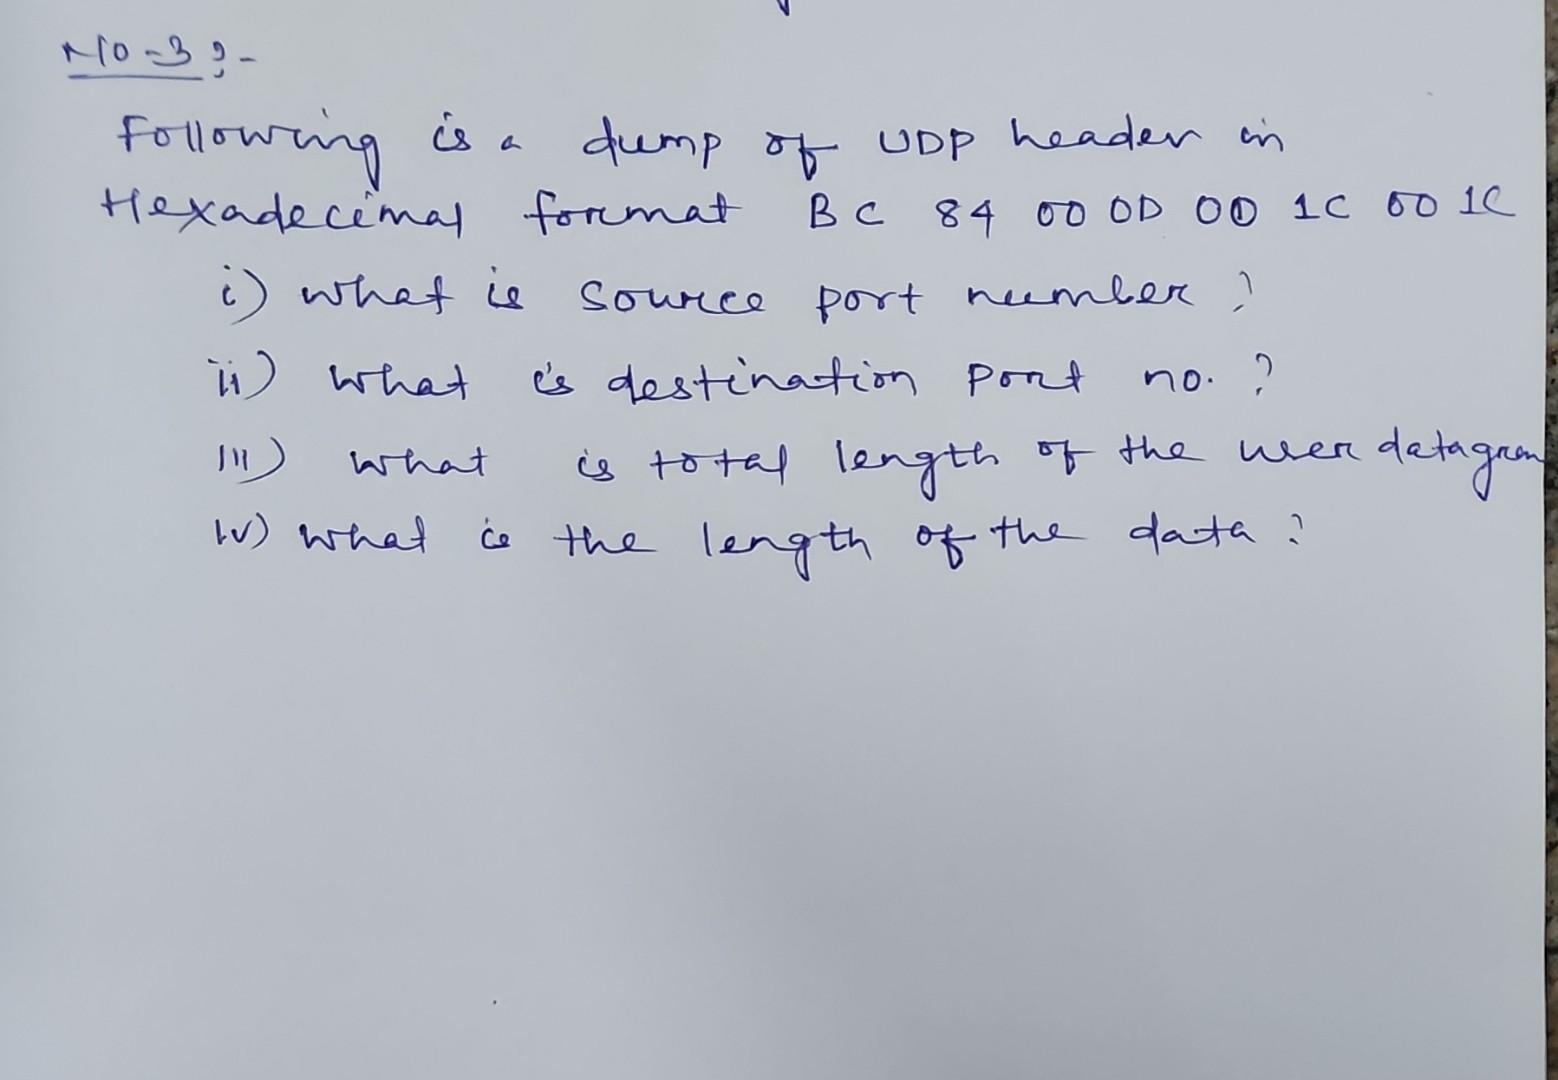 No-3:-
Following is a dump of UDP header in
Hexadecimal format BC 84 00 0D 00 1C 00 1C
i) what is source port number?
ii) what is destination port no.?
III) what is total length of the user datagram
IV) what is the length of the data?